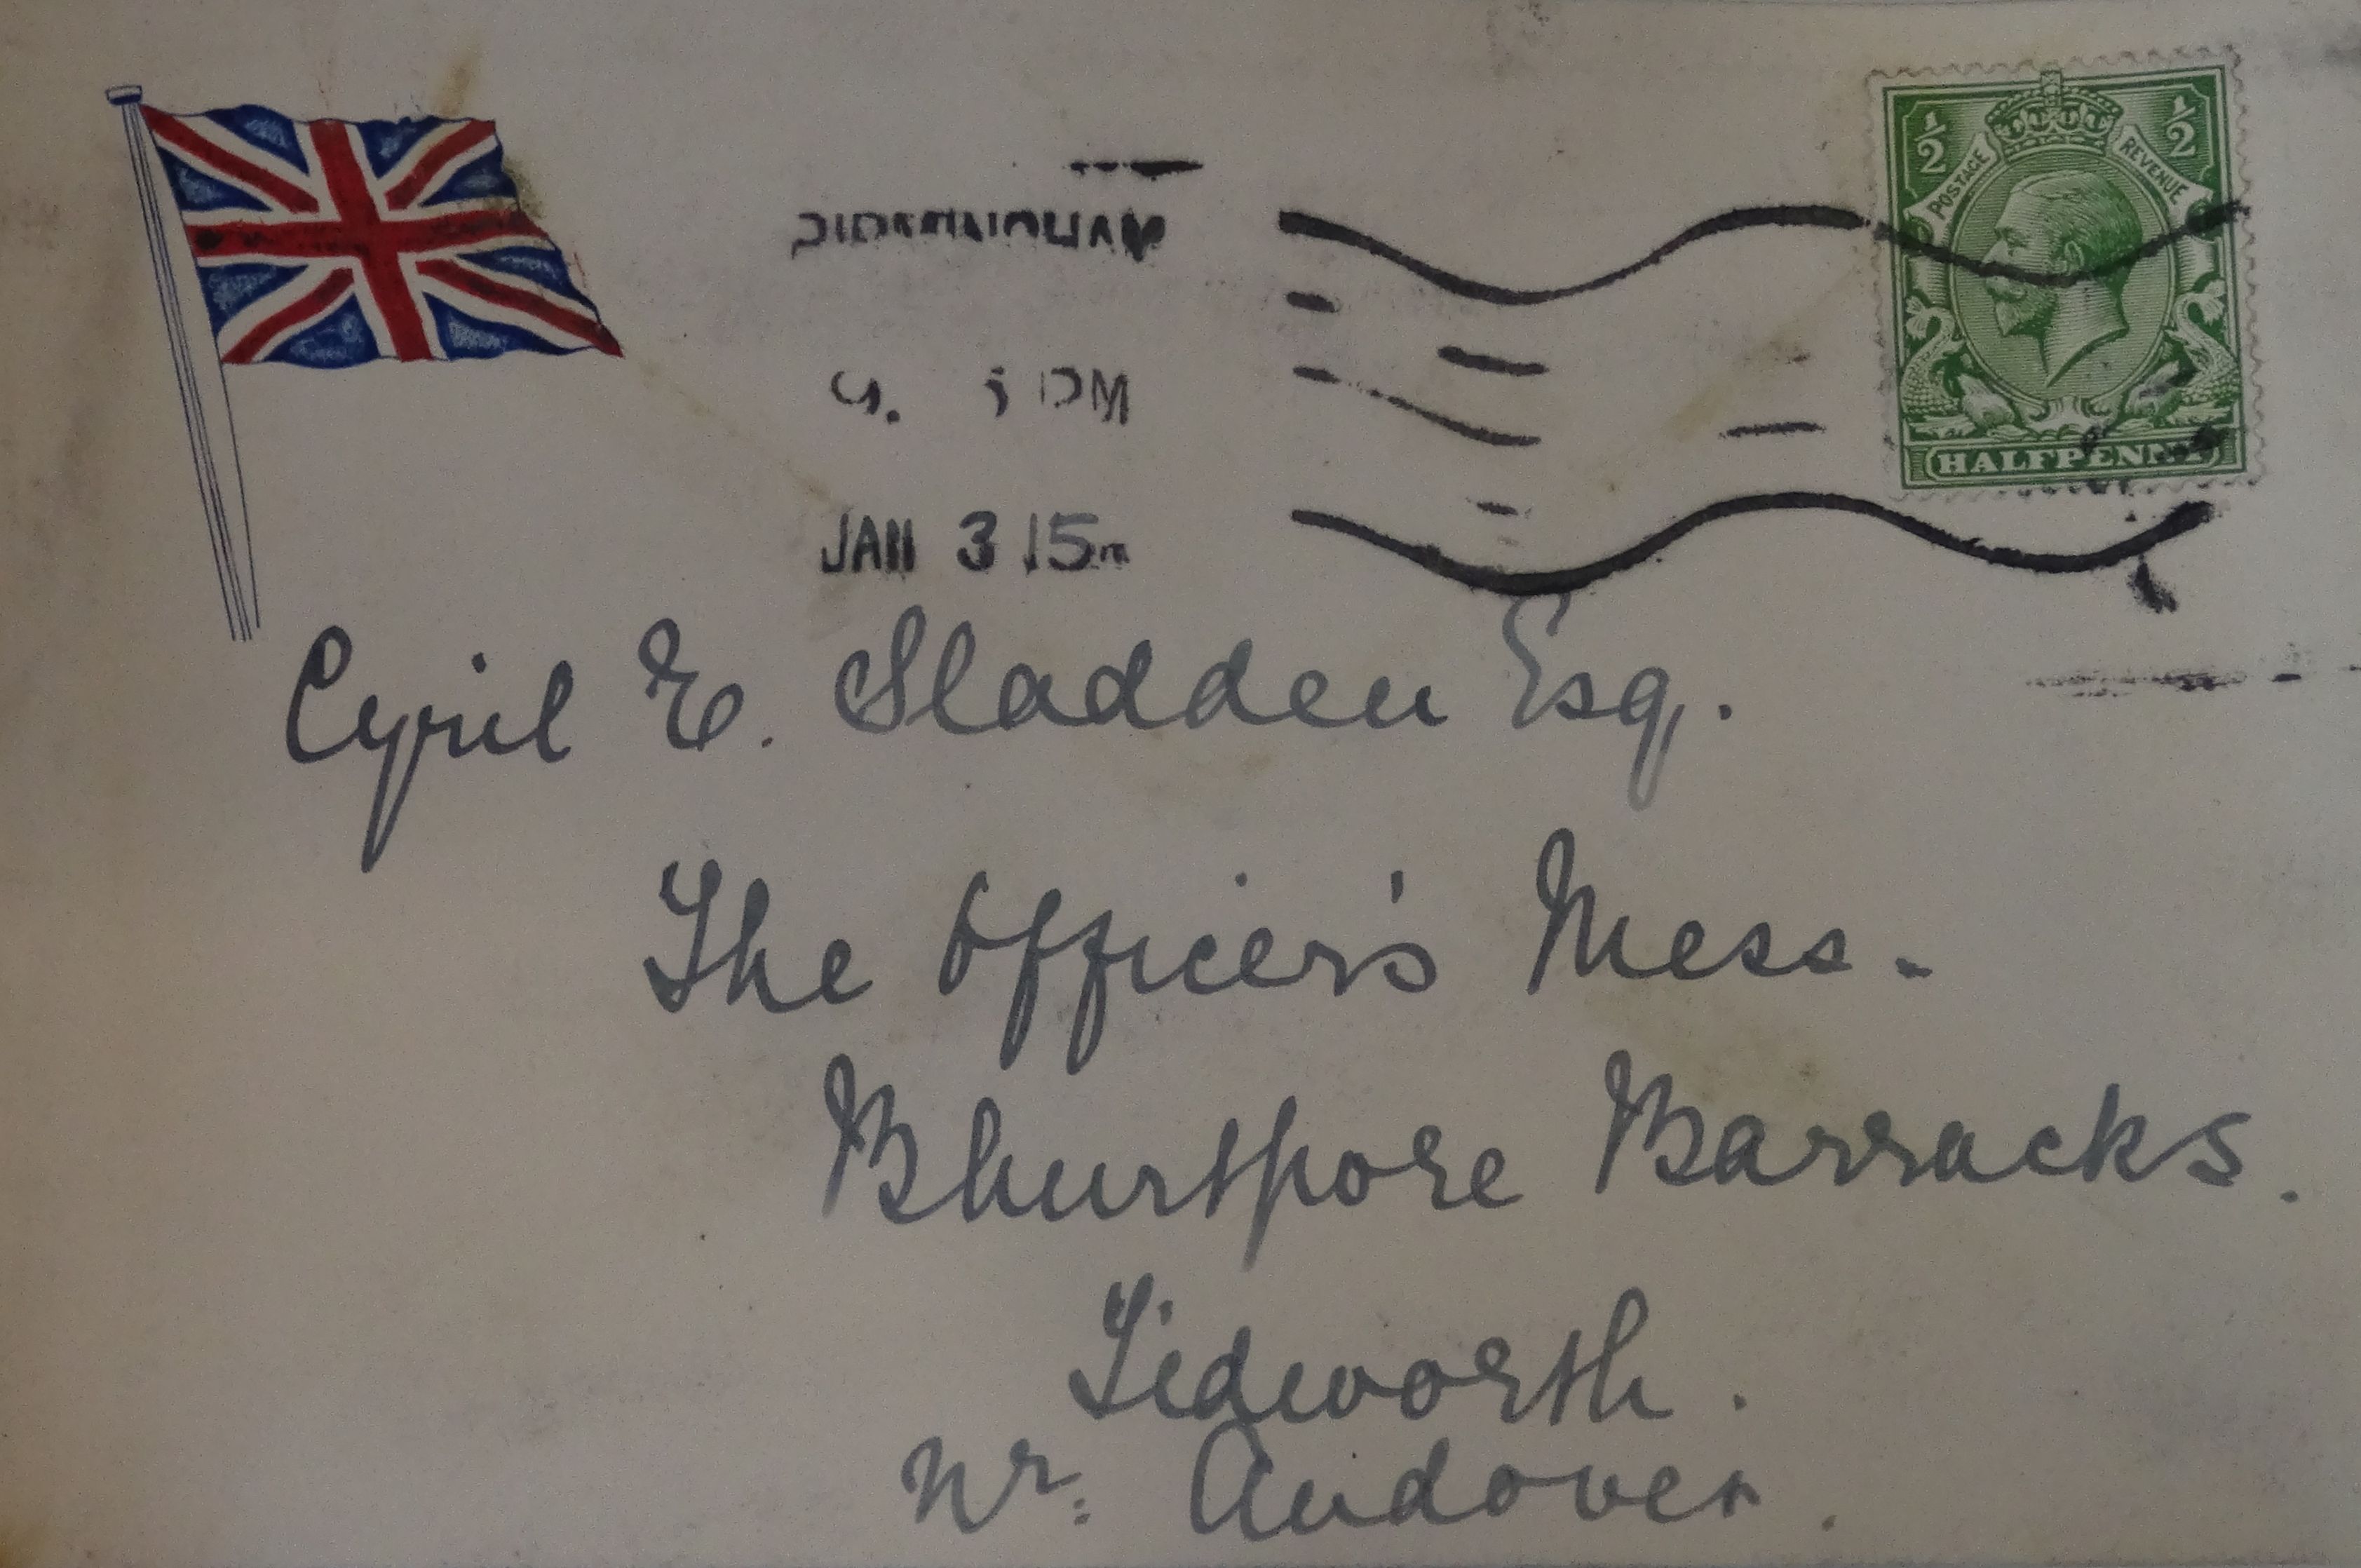 ½ ½
POSTAGE REVENUE
BIRMINGHAM
PM
JAN 3 15
HALFPENNY
Cyril E. Sladden Esq.
The Officer's Mess.
Bhurtpore Barracks.
Tidworth.
Nr. Andover.